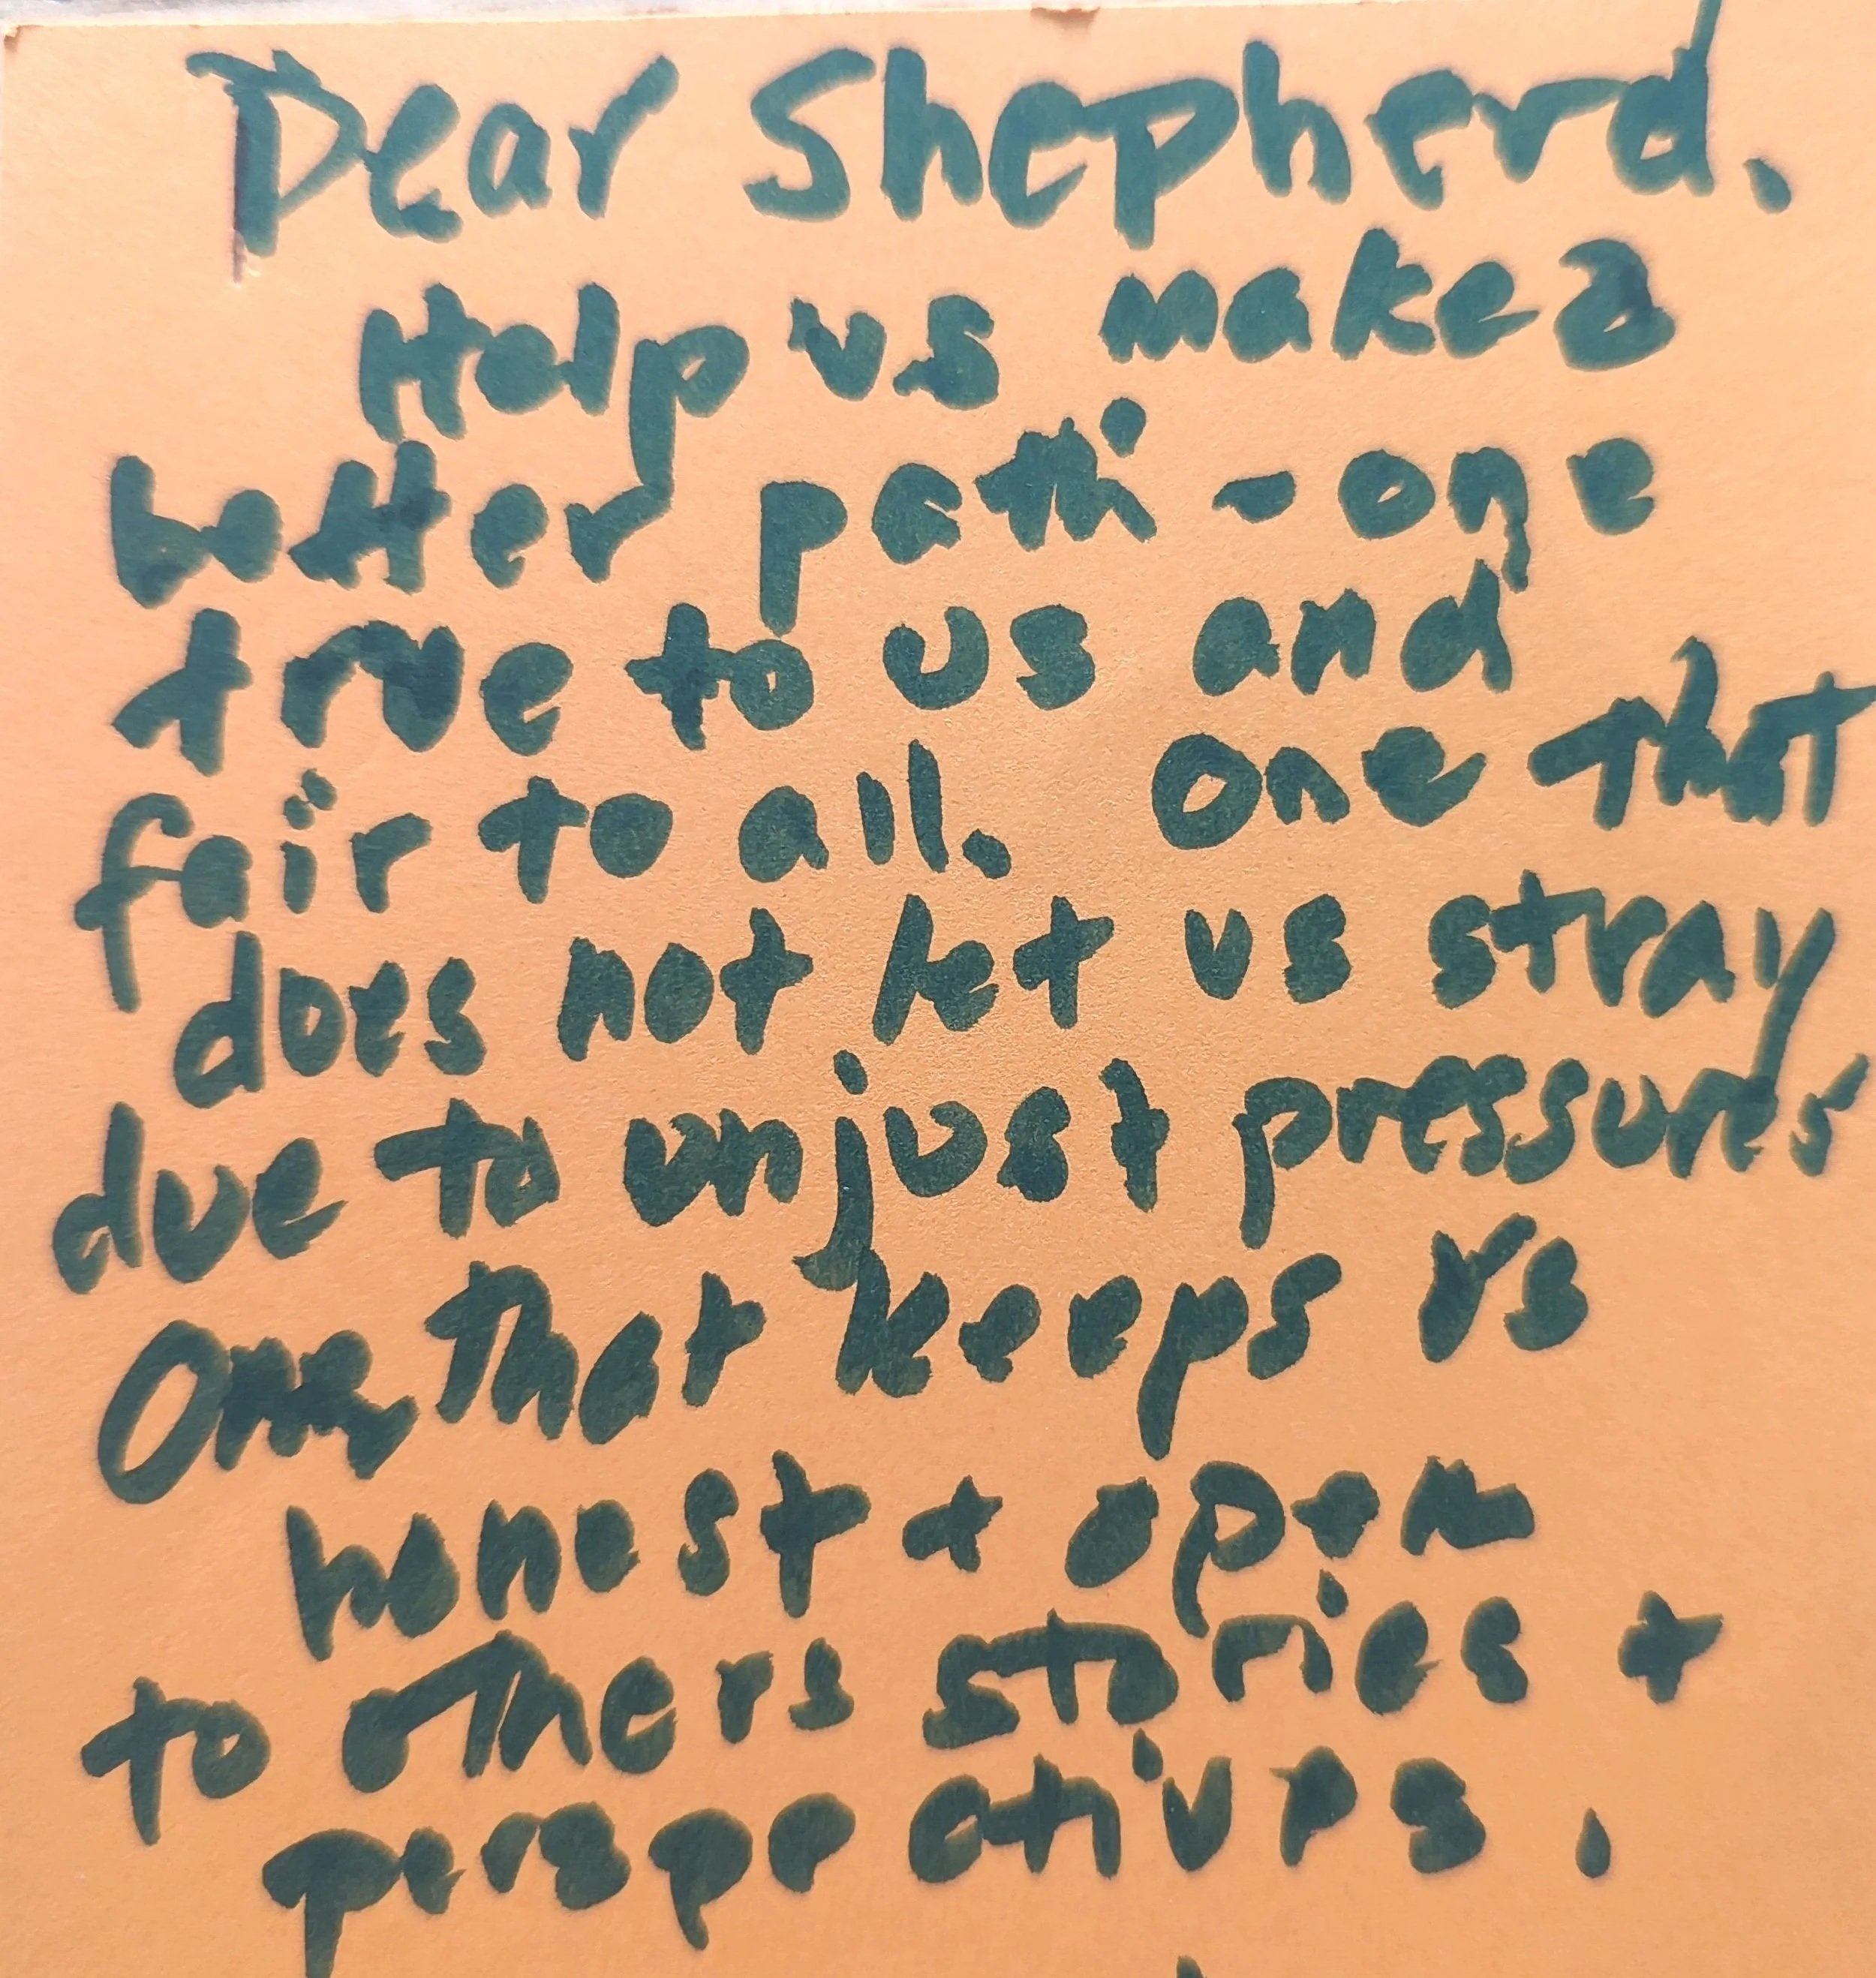 Dear Shepherd.
Help us make a
better path - one
true to us and
fair to all. One that
does not let us stray
due to unjust pressures
One that keeps us
honest + open
to others stories +
perspectives.